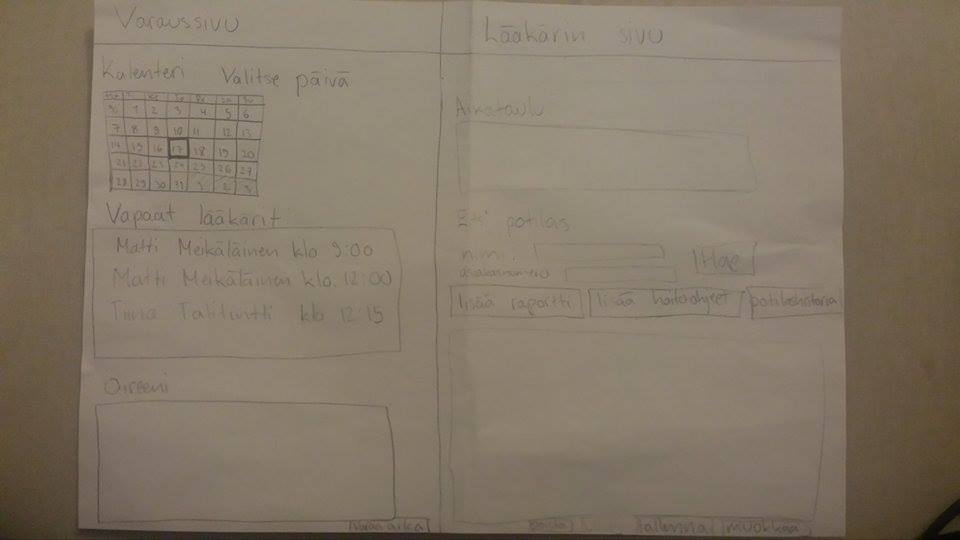 Varaussivu
Kalenteri Valitse päivä
Ke To Pe La Su
30 1 2 3 4 5 6
7 8 9 10 11 12 13
14 15 16 17 18 19 20
21 22 23 24 25 26 27
28 29 30 31 1 2 3
Vapaat lääkärit
Matti Meikäläinen klo 9:00
Matti Meikäläinen klo. 12:00
Tiina Talitintti klo 12:15
Oireeni
Varaa aika
Lääkärin sivu
Aikataulu
Etsi potilas
nimi:
Hae
lisää raportti lisää hoito-ohjeet potilashistoria
poista tallenna muokkaa